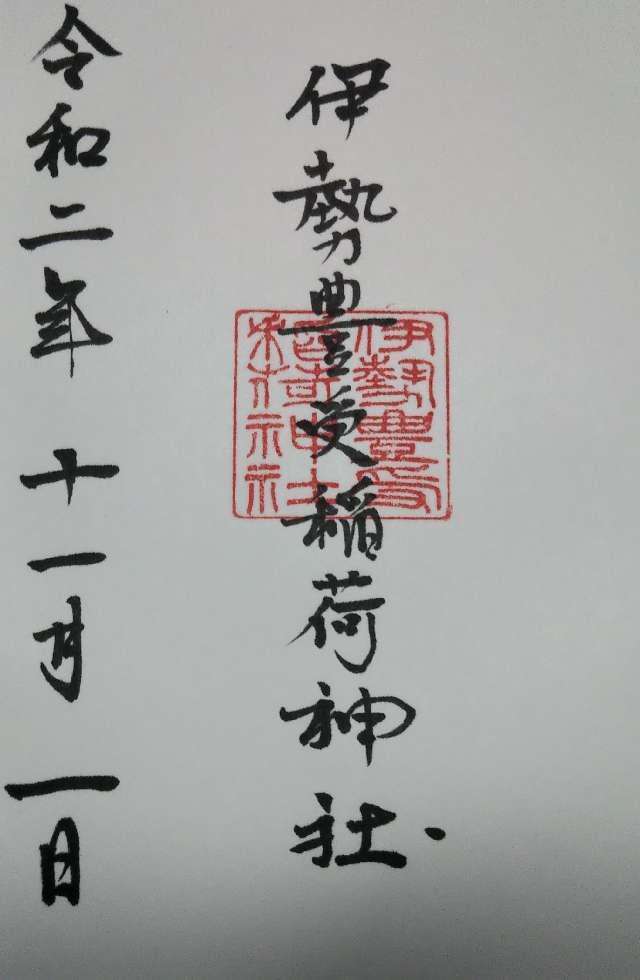 伊勢豊受稲荷神社
伊勢豊受
稲荷神社
令和二年 十一月 一日